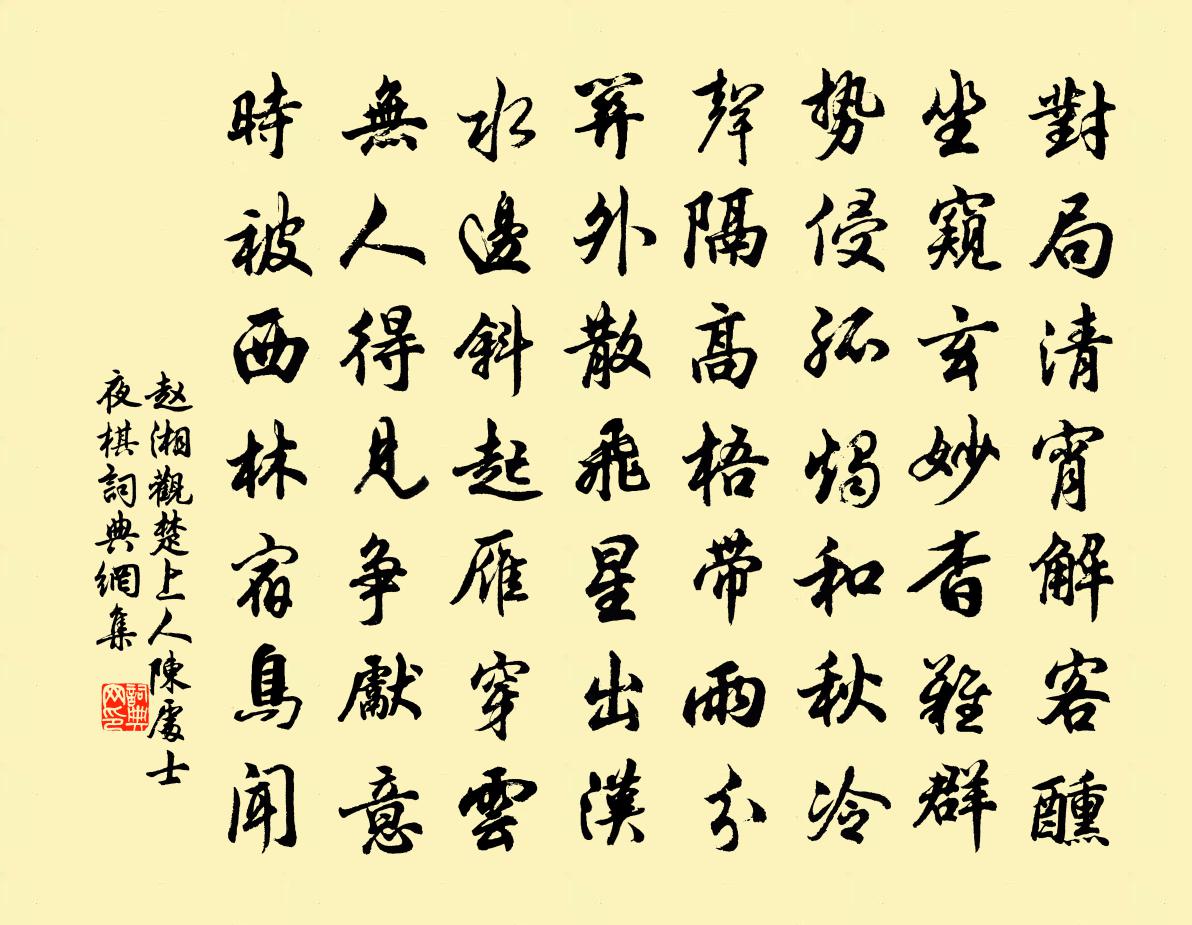 對局清宵解客醺
坐窺玄妙杳難群
勢侵孤燭和秋冷
聲隔高梧帶雨分
算外散飛星出漢
水邊斜起雁穿雲
無人得見爭獻意
時被西林宿鳥聞
赵湘觀楚上人陳處士
夜棋詞典網集
詞典网印